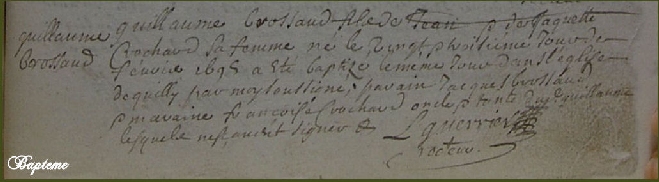 guillaume
brossaud
guillaume brossaud fils de Jean p de Jaquette
Crochard sa femme ne le vingt troisième Jour de
fevrie 1695 a été baptize le meme Jour dans l'église
de quilly par moy soussigné parain Jacques brossaud
maraine françoise Crochard oncle tente guillaume
lesquels signer
recteur
Bapteme